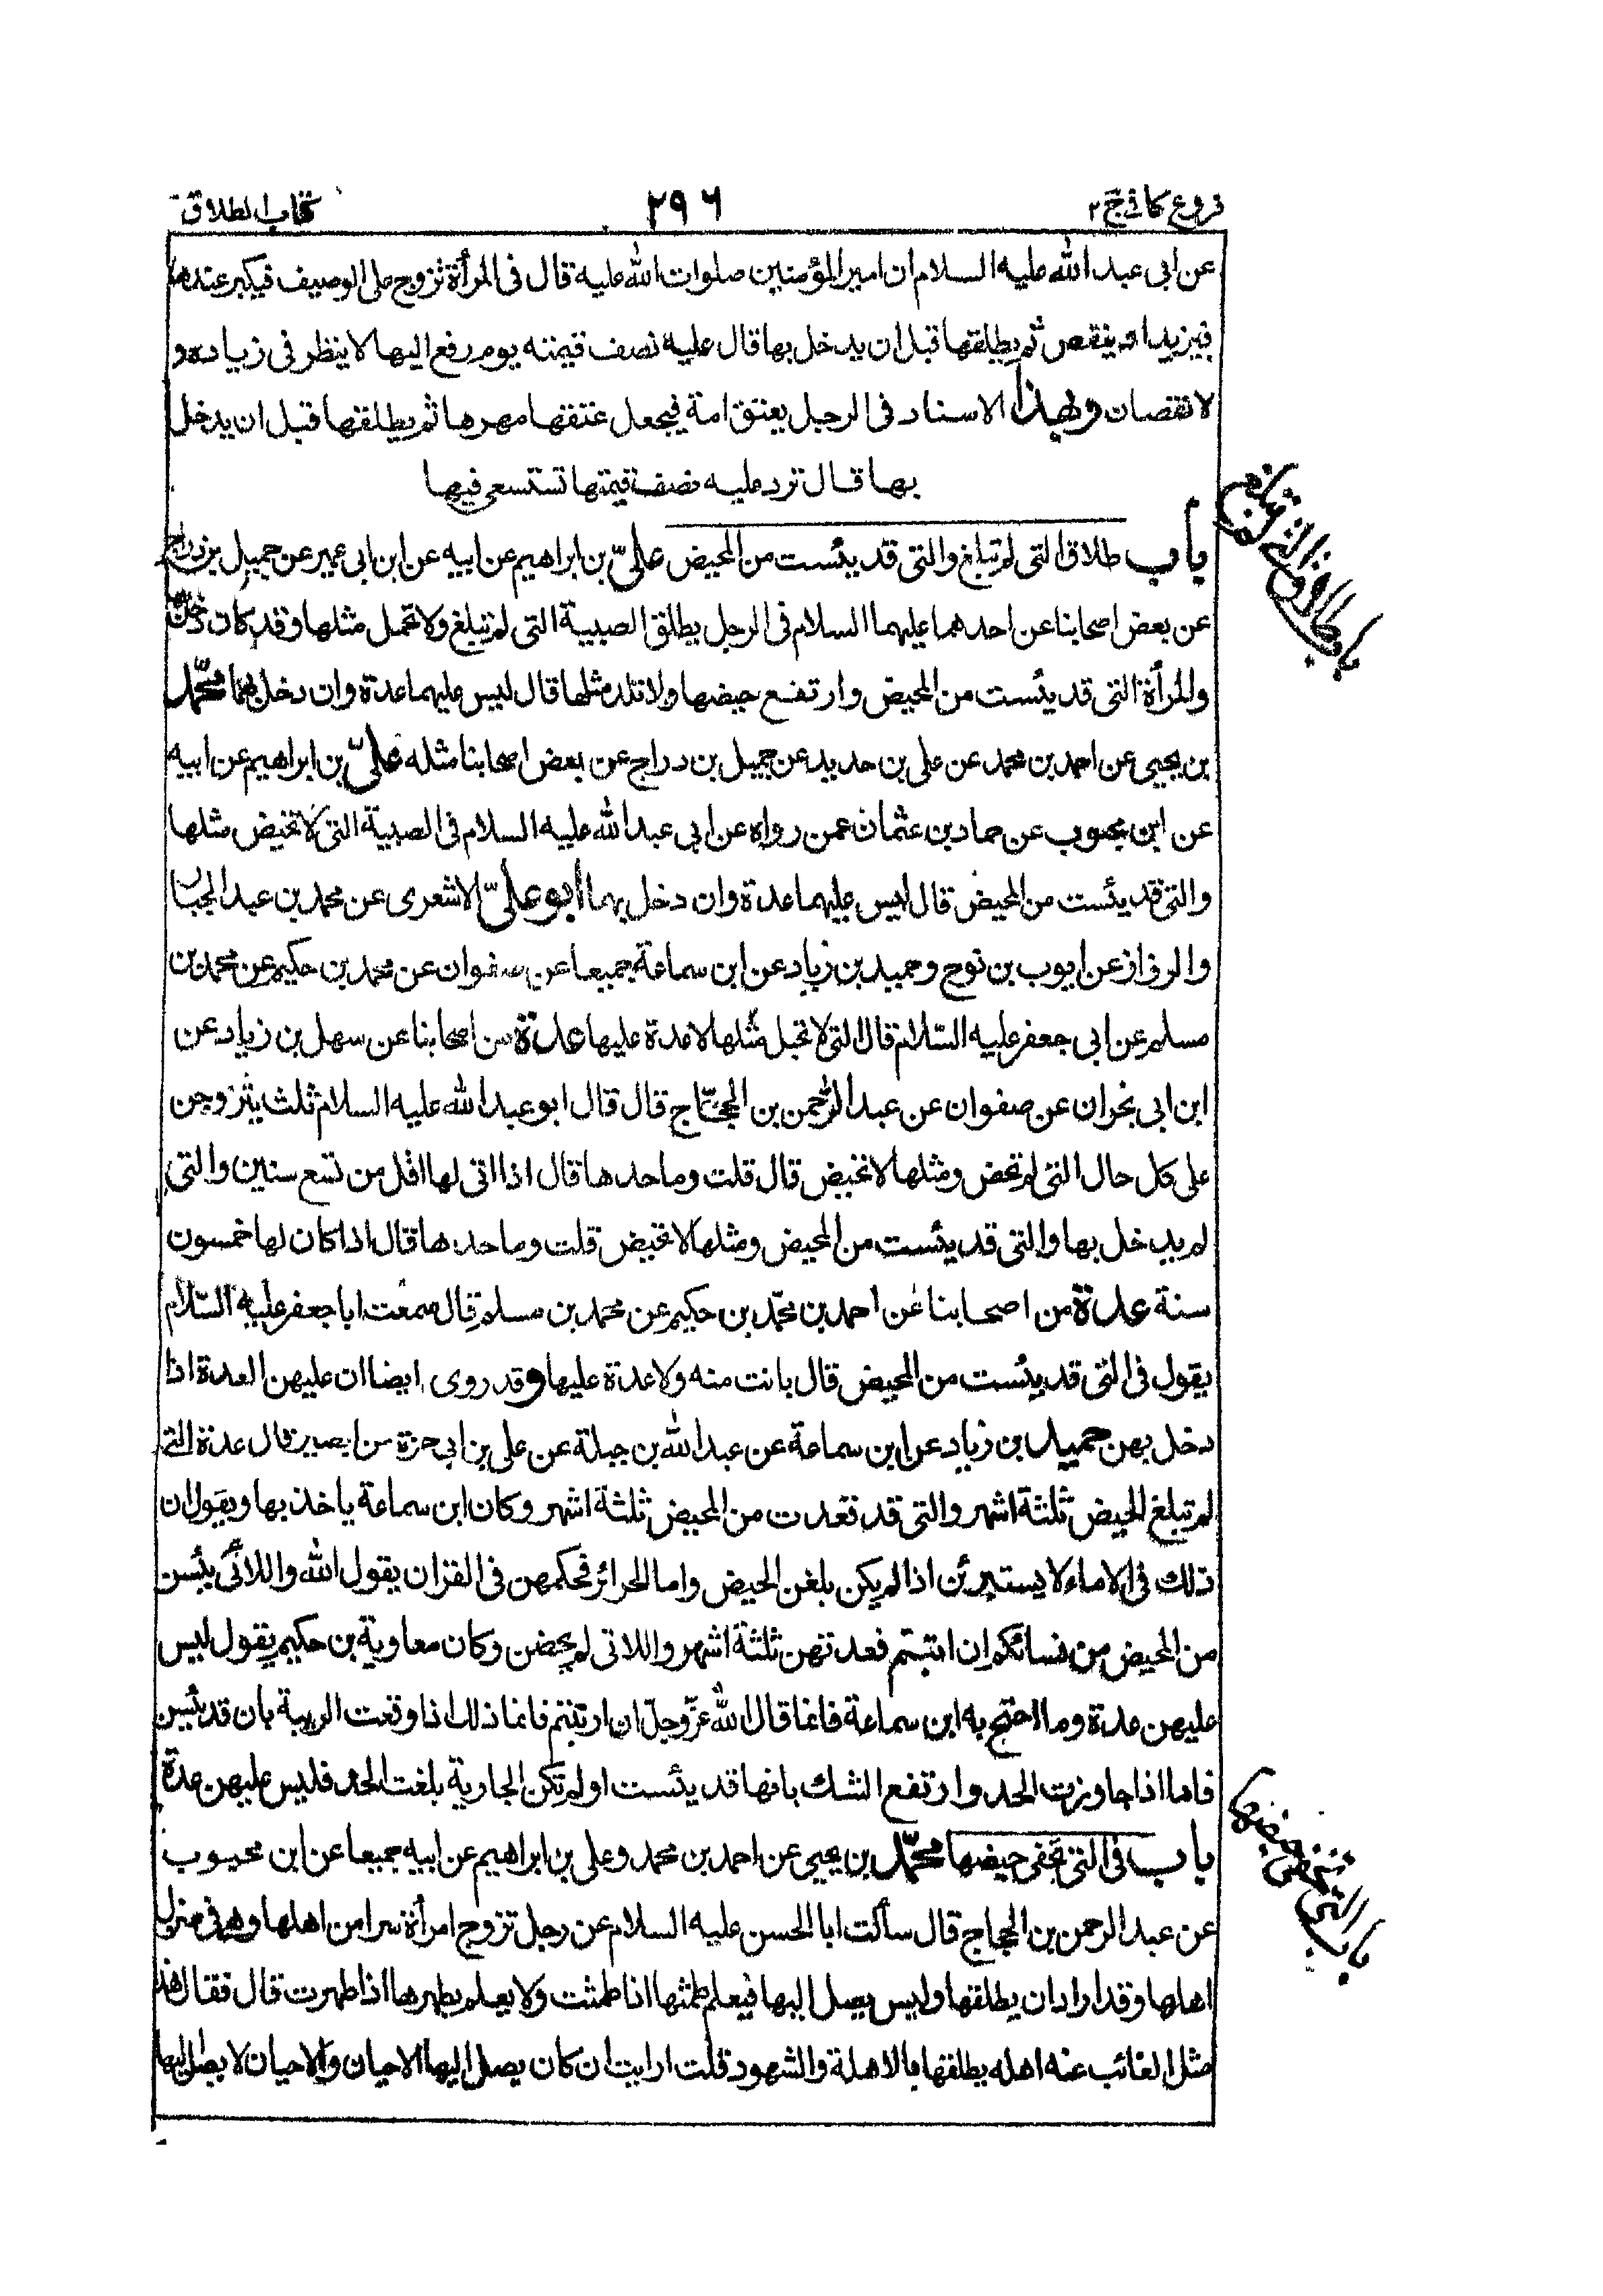 فروع كافى ج ٢
٢٩٦
كتاب الطلاق
عن ابى عبد الله عليه السلام ان امير المؤمنين صلوات الله عليه قال فى المرأة تزوج على الوصيف فيكبر عندها
فيزيد او ينقص ثم يطلقها قبل ان يدخل بها قال عليه نصف قيمته يوم رفع اليها لا ينظر فى زيادة و
لا نقصان وبهذا الاسناد فى الرجل يعتق امة فيجعل عتقها مهرها ثم يطلقها قبل ان يدخل
بها قال ترد عليه نصف قيمتها تستسعى فيها
باب طلاق التى لم تبلغ والتى قد يئست من المحيض علىّ بن ابراهيم عن ابيه عن ابن ابى عمير عن جميل بن دراج
عن بعض اصحابنا عن احدهما عليهما السلام فى الرجل يطلق الصبية التى لم تبلغ ولا تحمل مثلها وقد كان دخل بها
والمرأة التى قد يئست من المحيض وارتفع حيضها ولا تلد مثلها قال ليس عليهما عدة وان دخل بهما محمّد
بن يحيى عن احمد بن محمد عن على بن حديد عن جميل بن دراج عن بعض اصحابنا مثله علىّ بن ابراهيم عن ابيه
عن ابن محبوب عن حماد بن عثمان عمن رواه عن ابى عبد الله عليه السلام فى الصبية التى لا تحيض مثلها
والتى قد يئست من المحيض قال ليس عليهما عدة وان دخل بهما ابو علىّ الاشعرى عن محمد بن عبد الجبار
والرزاز عن ايوب بن نوح وحميد بن زياد عن ابن سماعة جميعا عن صفوان عن محمد بن حكيم عن محمد بن
مسلم عن ابى جعفر عليه السّلام قال التى لا تحبل مثلها لا عدة عليها عدة من اصحابنا عن سهل بن زياد عن
ابن ابى نجران عن صفوان عن عبد الرّحمن بن الحجّاج قال قال ابو عبد الله عليه السلام ثلث يتزوجن
على كل حال التى لم تحض ومثلها لا تحيض قال قلت وما حدها قال اذا اتى لها اقل من تسع سنين والتى
لم يدخل بها والتى قد يئست من المحيض ومثلها لا تحيض قلت وما حدها قال اذا كان لها خمسون
سنة عدة من اصحابنا عن احمد بن محمّد بن حكيم عن محمد بن مسلم قال سمعت ابا جعفر عليه السّلام
يقول فى التى قد يئست من المحيض قال بانت منه ولا عدة عليها وقد روى ايضا ان عليهن العدة اذا
دخل بهن حميد بن زياد عن ابن سماعة عن عبد الله بن جبلة عن على بن ابى حمزة عن ابى بصير قال عدة التى
لم تبلغ الحيض ثلثة اشهر والتى قد قعدت من المحيض ثلثة اشهر وكان ابن سماعة ياخذ بها ويقول ان
ذلك فى الاماء لا يستبرئن اذا لم يكن بلغن الحيض واما الحرائر فحكمهن فى القران يقول الله واللائى يئسن
من المحيض من نسائكم ان ارتبتم فعدتهن ثلثة اشهر واللاتى لم يحضن وكان معاوية بن حكيم يقول ليس
عليهن عدة وما احتج به ابن سماعة فانما قال الله عزّ وجلّ ان ارتبتم فانما ذلك اذا وقعت الريبة بان قد يئسن
فاما اذا جاوزت الحد وارتفع الشك بانها قد يئست او لم تكن الجارية بلغت الحد فليس عليهن عدة
باب فى التى تخفى حيضها محمّد بن يحيى عن احمد بن محمد وعلى بن ابراهيم عن ابيه جميعا عن ابن محبوب
عن عبد الرحمن بن الحجاج قال سألت ابا الحسن عليه السلام عن رجل تزوج امرأة سرا من اهلها وهى فى منزل
اهلها وقد اراد ان يطلقها وليس يصل اليها فيعلم طمثها اذا طمثت ولا يعلم بطهرها اذا طهرت قال فقال هذا
مثل الغائب عنه اهله يطلقها بالاهلة والشهود قلت ارايت ان كان يصل اليها الاحيان والاحيان لا يصل اليها
باب التى تخفى حيضها